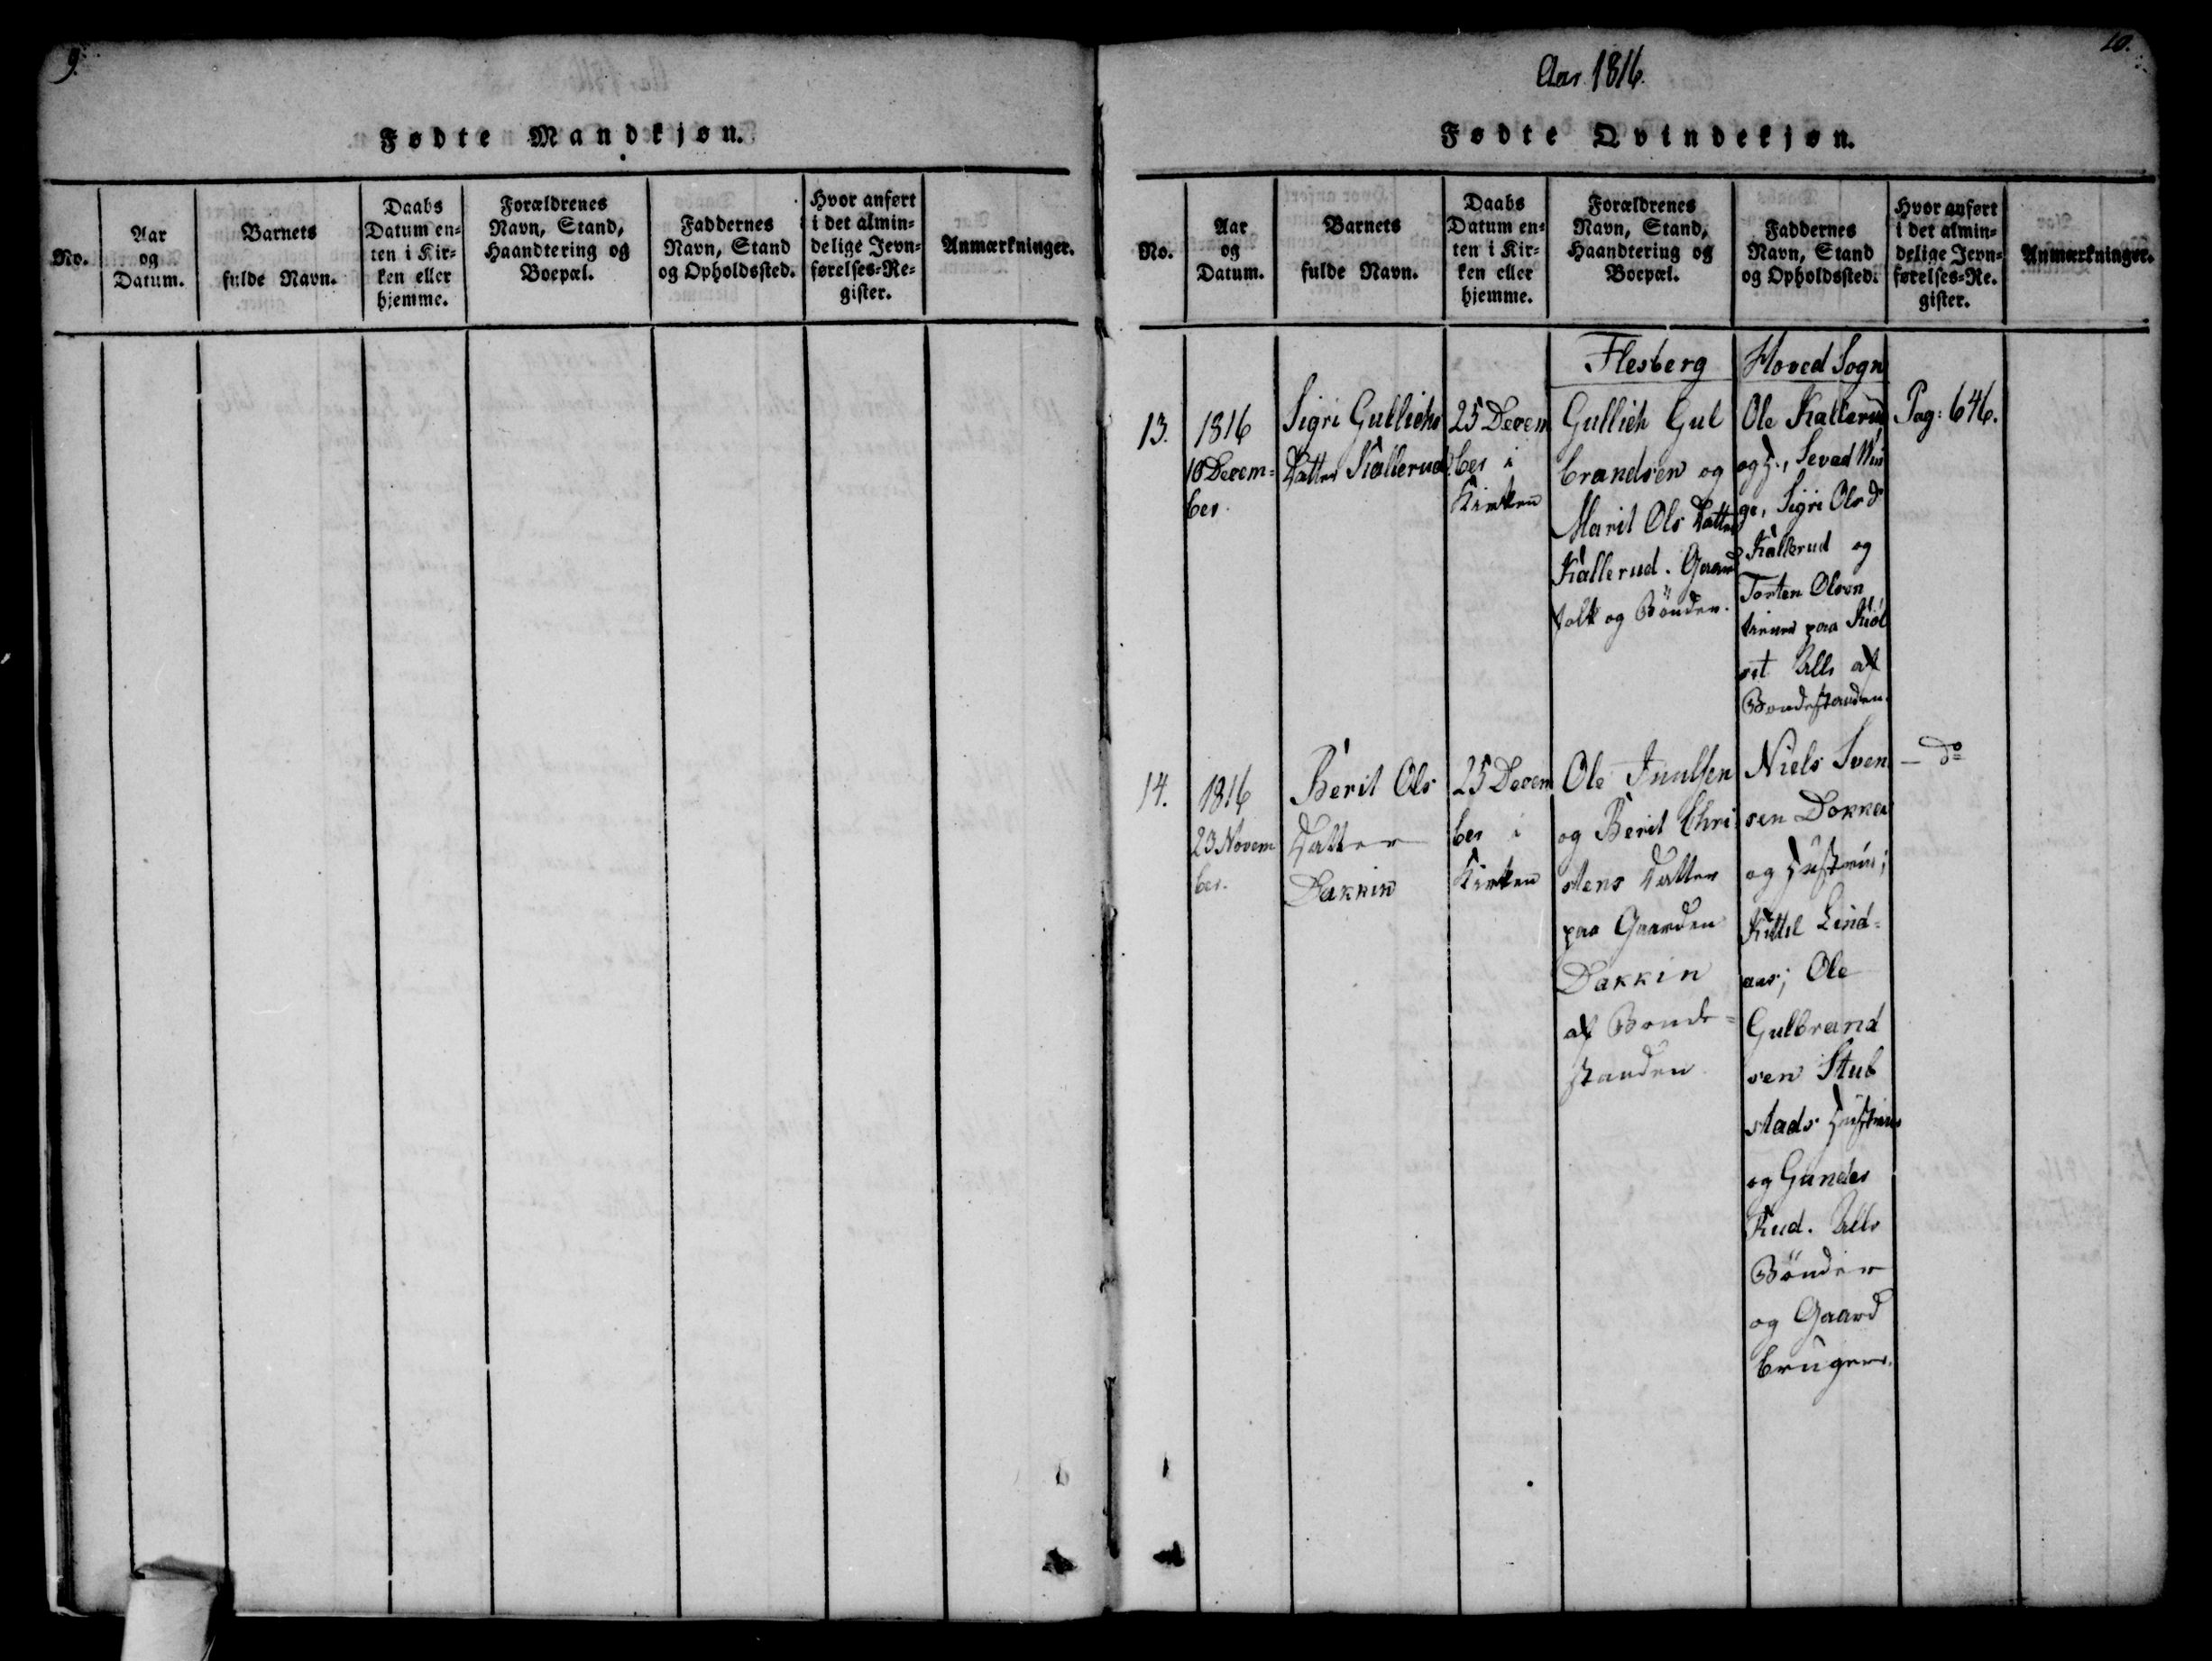 9.
Fødte Mandkjøn.
No.
Aar
og
Datum.
Barnets
fulde Navn.
Daabs
Datum en-
ten i Kir-
ken eller
hjemme.
Forældrenes
Navn, Stand,
Haandtering og
Boepæl.
Faddernes
Navn, Stand
og Opholdssted.
Hvor anført
i det almin-
delige Jevn-
førelses-Re-
gister.
Anmærkninger.
10.
Aar 1816.
Fødte Qvindekjøn.
No.
Aar
og
Datum.
Barnets
fulde Navn.
Daabs
Datum en-
ten i Kir-
ken eller
hjemme.
Forældrenes
Navn, Stand,
Haandtering og
Boepæl.
Faddernes
Navn, Stand
og Opholdssted.
Hvor anført
i det almin-
delige Jevn-
førelses-Re-
gister.
Anmærkninger.
Flesberg
Hoved Sogn
13.
1816
10 Decem=
ber.
Sigri Gullichs
Datter Kallerud
25 Decem
ber i
Kirken
Gullich Gul
brandsen og
Marit Ols Datter
Kallerud. Gaard
folk og Bønder.
Ole Kallerud
og H., Sevad
ge, Sigri Ols d
Kallerud og
Torsten Olsen
tiener paa Kiøl
set Alle af
Bondestanden.
Pag: 646.
14.
1816
23 Novem
ber.
Berit Ols
Datter
Dakkin
25 Decem
ber i
Kirken
Ole Juulsen
og Berit Chri
stens Datter
paa Gaarden
Dakkin
af Bonde=
standen.
Niels Sven
sen Dokken
og Hustrue;
Kittil Lind=
aas; Ole
Gulbrand
sen Stub
stads Hustrue
og Gunder
Rud. Alle
Bønder
og Gaard
brugere.
— do